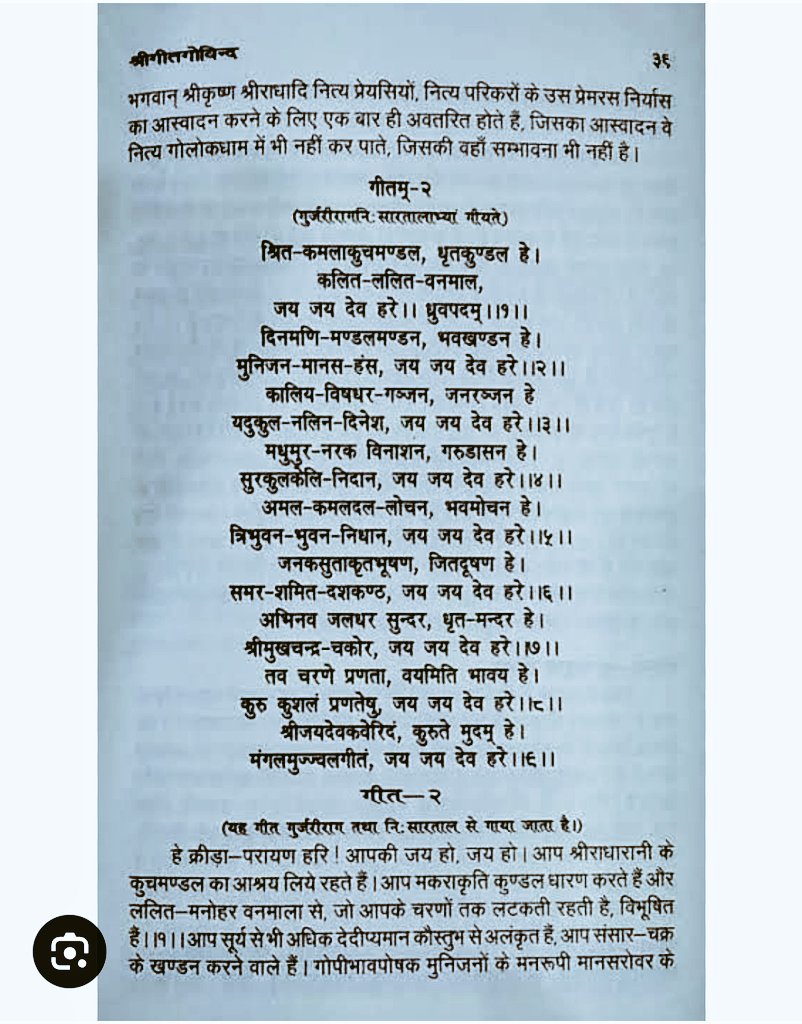 श्रीगीतगोविन्द ३९
भगवान् श्रीकृष्ण श्रीराधादि नित्य प्रेयसियों, नित्य परिकरों के उस प्रेमरस निर्यास
का आस्वादन करने के लिए एक बार ही अवतरित होते हैं, जिसका आस्वादन वे
नित्य गोलोकधाम में भी नहीं कर पाते, जिसकी वहाँ सम्भावना भी नहीं है।
गीतम्-२
(गुर्जरीरागनिःसारतालाभ्यां गीयते)
श्रित-कमलाकुचमण्डल, धृतकुण्डल हे।
कलित-ललित-वनमाल,
जय जय देव हरे।। ध्रुवपदम्।।१।।
दिनमणि-मण्डलमण्डन, भवखण्डन हे।
मुनिजन-मानस-हंस, जय जय देव हरे।।२।।
कालिय-विषधर-गञ्जन, जनरञ्जन हे
यदुकुल-नलिन-दिनेश, जय जय देव हरे।।३।।
मधुमुर-नरक विनाशन, गरुडासन हे।
सुरकुलकेलि-निदान, जय जय देव हरे।।४।।
अमल-कमलदल-लोचन, भवमोचन हे।
त्रिभुवन-भुवन-निधान, जय जय देव हरे।।५।।
जनकसुताकृतभूषण, जितदूषण हे।
समर-शमित-दशकण्ठ, जय जय देव हरे।।६।।
अभिनव जलधर सुन्दर, धृत-मन्दर हे।
श्रीमुखचन्द्र-चकोर, जय जय देव हरे।।७।।
तव चरणे प्रणता, वयमिति भावय हे।
कुरु कुशलं प्रणतेषु, जय जय देव हरे।।८।।
श्रीजयदेवकवेरिदं, कुरुते मुदम् हे।
मंगलमुज्ज्वलगीतं, जय जय देव हरे।।९।।
गीत—२
(यह गीत गुर्जरीराग तथा निःसारताल से गाया जाता है।)
हे क्रीड़ा-परायण हरि ! आपकी जय हो, जय हो। आप श्रीराधारानी के
कुचमण्डल का आश्रय लिये रहते हैं। आप मकराकृति कुण्डल धारण करते हैं और
ललित-मनोहर वनमाला से, जो आपके चरणों तक लटकती रहती है, विभूषित
हैं।।१।। आप सूर्य से भी अधिक देदीप्यमान कौस्तुभ से अलंकृत हैं, आप संसार-चक्र
के खण्डन करने वाले हैं। गोपीभावपोषक मुनिजनों के मनरूपी मानसरोवर के